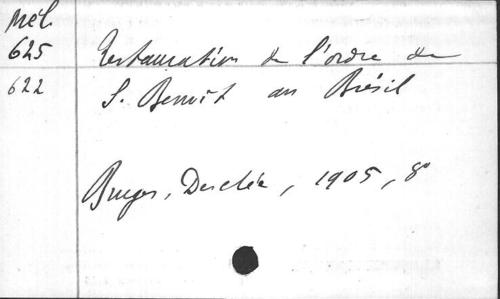 Mél.
625 Restauration de l'ordre de
622 S. Benoît au Brésil
Bruges, Desclée, 1905, 8°